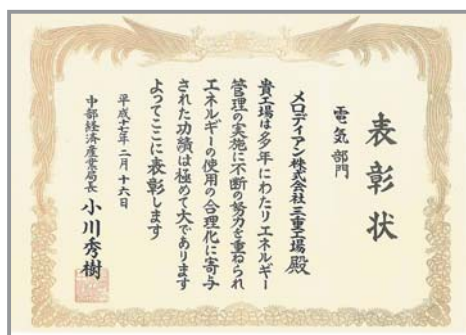 表彰状
電気部門
メロディアン株式会社三重工場 殿
貴工場は多年にわたりエネルギー
管理の実施に不断の努力を重ねられ
エネルギーの使用の合理化に寄与
された功績は極めて大であります
よってここに表彰します
平成十七年二月十六日
中部経済産業局長 小川秀樹